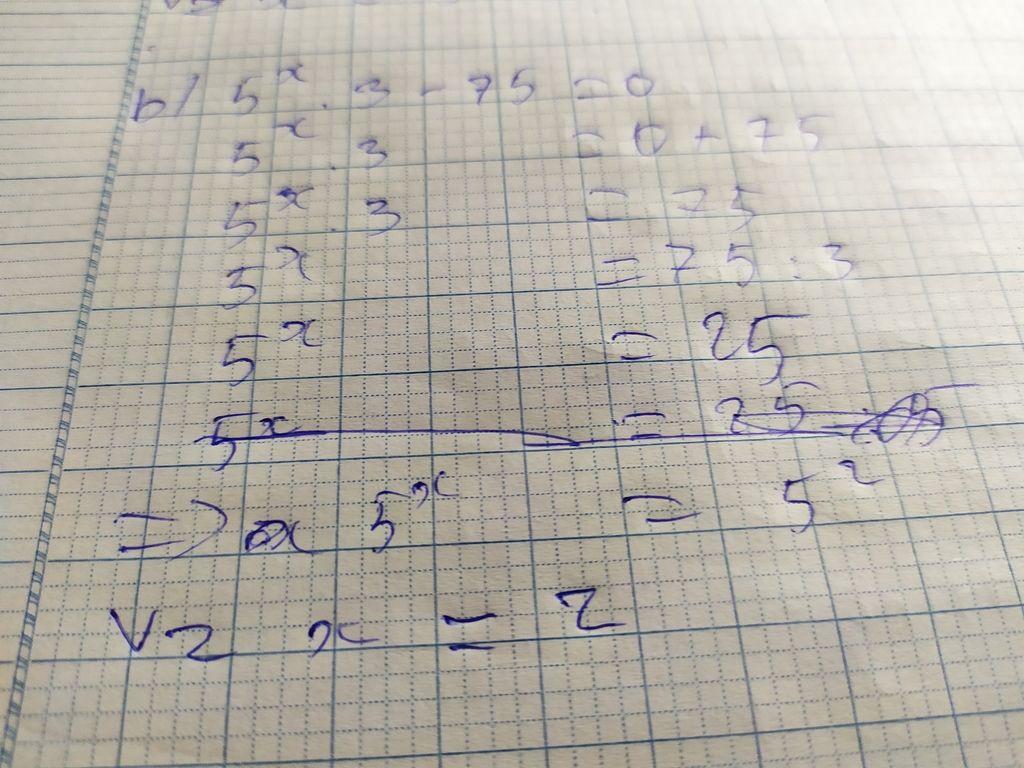 b/ 5ˣ . 3 - 75 = 0
5ˣ . 3 = 0 + 75
5ˣ . 3 = 75
5ˣ = 75 : 3
5ˣ = 25
5ˣ = 25
=> x 5ˣ = 5²
Vz x = 2